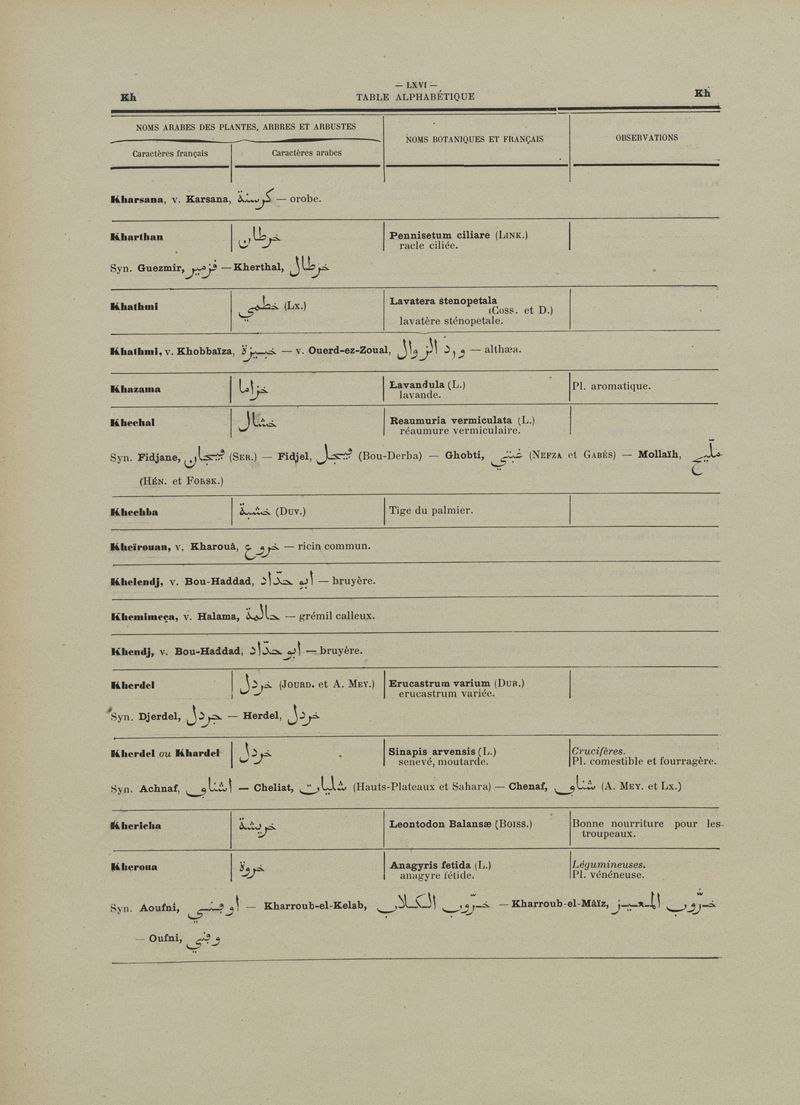 — LXVI —
Kh TABLE ALPHABÉTIQUE Kh
NOMS ARABES DES PLANTES, ARBRES ET ARBUSTES
NOMS BOTANIQUES ET FRANÇAIS
OBSERVATIONS
Caractères français Caractères arabes
Kharsana, v. Karsana, كرسنة — orobe.
Kharthan خرطان Pennisetum ciliare (LINK.)
racle ciliée.
Syn. Guezmir, قزمير — Kherthal, خرطال
Khathmi خطمي (Lx.) Lavatera stenopetala
(Coss. et D.)
lavatère sténopetale.
Khathmi, v. Khobbaïza, خبيزة — v. Ouerd-ez-Zoual, ورد الزوال — althæa.
Khazama خزاما Lavandula (L.) Pl. aromatique.
lavande.
Khechal خشال Reaumuria vermiculata (L.)
réaumure vermiculaire.
Syn. Fidjane, فيجان (SER.) — Fidjel, فيجل (Bou-Derba) — Ghobti, (NEFZA et GABÈS) — Mollaïh, مليح
(HÉN. et FORSK.)
Khechba خشبة (DUV.) Tige du palmier.
Kheïrouan, v. Kharouâ, خروع — ricin commun.
Khelendj, v. Bou-Haddad, ابو حدّاد — bruyère.
Khemimeça, v. Halama, حالمة — grémil calleux.
Khendj, v. Bou-Haddad, ابو حدّاد — bruyère.
Kherdel خردل (JOURD. et A. MEY.) Erucastrum varium (DUR.)
erucastrum variée.
Syn. Djerdel, جردل — Herdel, خردل
Kherdel ou Khardel خردل Sinapis arvensis (L.) Crucifères.
senevé, moutarde. Pl. comestible et fourragère.
Syn. Achnaf, اشناف — Cheliat, شليات (Hauts-Plateaux et Sahara) — Chenaf, شناف (A. MEY. et Lx.)
Khericha خريشة Leontodon Balansæ (BOISS.) Bonne nourriture pour les
troupeaux.
Kheroua خروة Anagyris fetida (L.) Légumineuses.
anagyre fétide. Pl. vénéneuse.
Syn. Aoufni, اوفني — Kharroub-el-Kelab, خروب الكلاب — Kharroub-el-Mâïz, خرّوب المعيز
— Oufni, وفني